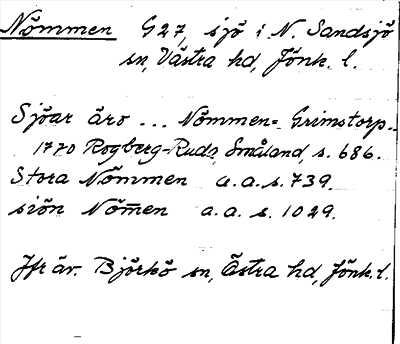 Nömmen G27, sjö i N. Sandsjö
sn, Västra hd, Jönk. l.
Sjöar äro ... Nömmen=Grimstorp..
1770 Rogberg-Ruda, Småland, s. 686.
Stora Nömmen a.a.s. 739.
siön Nöm̄en a.a. s. 1029.
Jfr äv. Björkö sn, Östra hd, Jönk. l.